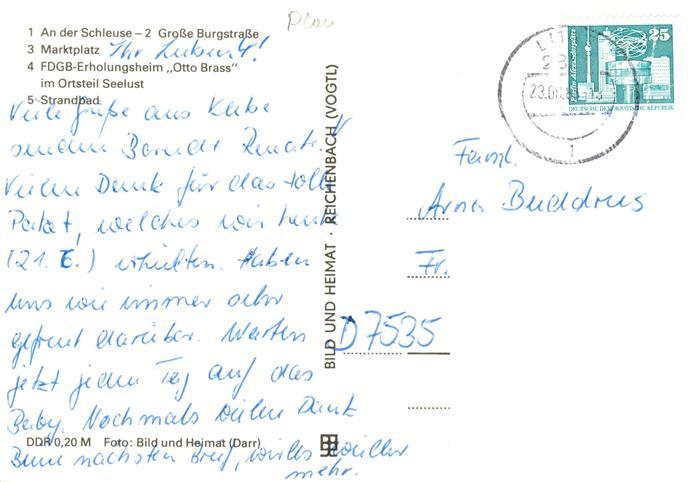 Plau
1 An der Schleuse – 2 Große Burgstraße
3 Marktplatz
4 FDGB-Erholungsheim „Otto Brass“
im Ortsteil Seelust
5 Strandbad
Ihr Lieben 4!
Viele Grüße aus
senden Bernd +
Vielen Dank für das tolle
Paket, welches wir heute
(21.6.) erhielten. Haben
uns wie immer sehr
gefreut darüber. Warten
jetzt jeden Tag auf das
Baby. Nochmals vielen Dank
Beim nächsten Brief, wieder
mehr.
DDR 0,20 M Foto: Bild und Heimat (Darr)
BILD UND HEIMAT · REICHENBACH (VOGTL)
25
DEUTSCHE DEMOKRATISCHE REPUBLIK
Faml.
Arno Buddrus
Fr.
D 7535